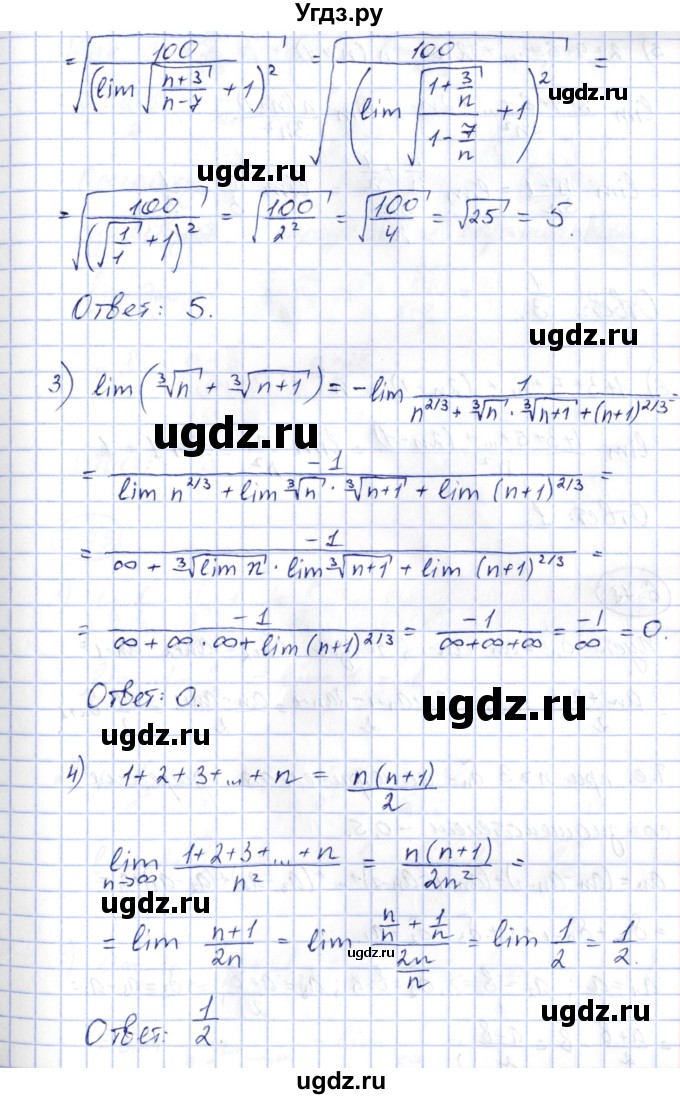 Угдз.ру
= √(100/(lim √((n+3)/(n-7)) + 1)²) = √(100/(lim √((1+3/n)/(1-7/n)) + 1)²) =
ugdz.ru
ugdz.ru
= √(100/(√(1/1) + 1)²) = √(100/2²) = √(100/4) = √25 = 5.
ugdz.ru
Ответ: 5.
ugdz.ru
3) lim(∛n + ∛(n+1)) = -lim 1/(n^(2/3) + ∛n · ∛(n+1) + (n+1)^(2/3)) =
ugdz.ru
= -1/(lim n^(2/3) + lim ∛n · ∛(n+1) + lim (n+1)^(2/3)) =
ugdz.ru
= -1/(∞ + ∛(lim n) · lim ∛(n+1) + lim (n+1)^(2/3)) =
= -1/(∞ + ∞ · ∞ + lim (n+1)^(2/3)) = -1/(∞+∞+∞) = -1/∞ = 0.
Ответ: 0.
ugdz.ru
ugdz.ru
4) 1+2+3+...+n = n(n+1)/2
lim n→∞ (1+2+3+...+n)/n² = n(n+1)/(2n²) =
ugdz.ru
= lim (n+1)/(2n) = lim (n/n + 1/n)/(2n/n) = lim 1/2 = 1/2.
ugdz.ru
Ответ: 1/2.
ugdz.ru
ugdz.ru